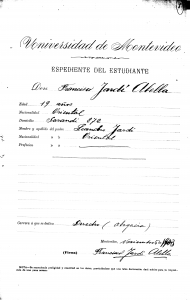 Universidad de Montevideo
EXPEDIENTE DEL ESTUDIANTE
Don Francisco Jardí Abella
Edad 19 años
Nacionalidad Oriental
Domicilio Sarandí 272
Nombre y apellido del padre Leandro Jardi
Nacionalidad » Oriental
Profesión »
Carrera á que se dedica Derecho (abogacía)
Montevideo, Noviembre
(Firma) Francisco Jardí Abella